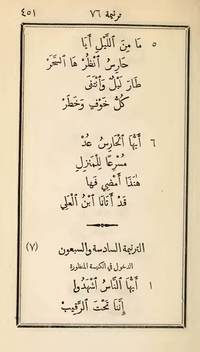 ترنيمة ٧٦
٤٥١
٥ مَا مِنَ ٱللَّيْلِ أَيَا
حَارِسُ ٱنْظُرْ هَا ٱلسَّحَرْ
طَارَ لَيْلٌ وَٱنْتَفَى
كُلُّ خَوْفٍ وَخَطَرْ
٦ أَيُّهَا ٱلْحَارِسُ عُدْ
مُسْرِعًا لِلْمَنْزِلِ
هٰهُنَا أَمْضِي فَهَا
قَدْ أَتَانَا ٱبْنُ ٱلْعَلِي
الترنيمة السادسة والسبعون (٧)
الدخول في الكنيسة المنظورة
١ أَيُّهَا ٱلنَّاسُ ٱشْهَدُوا
إِنَّنَا تَحْتَ ٱلرَّقِيبْ